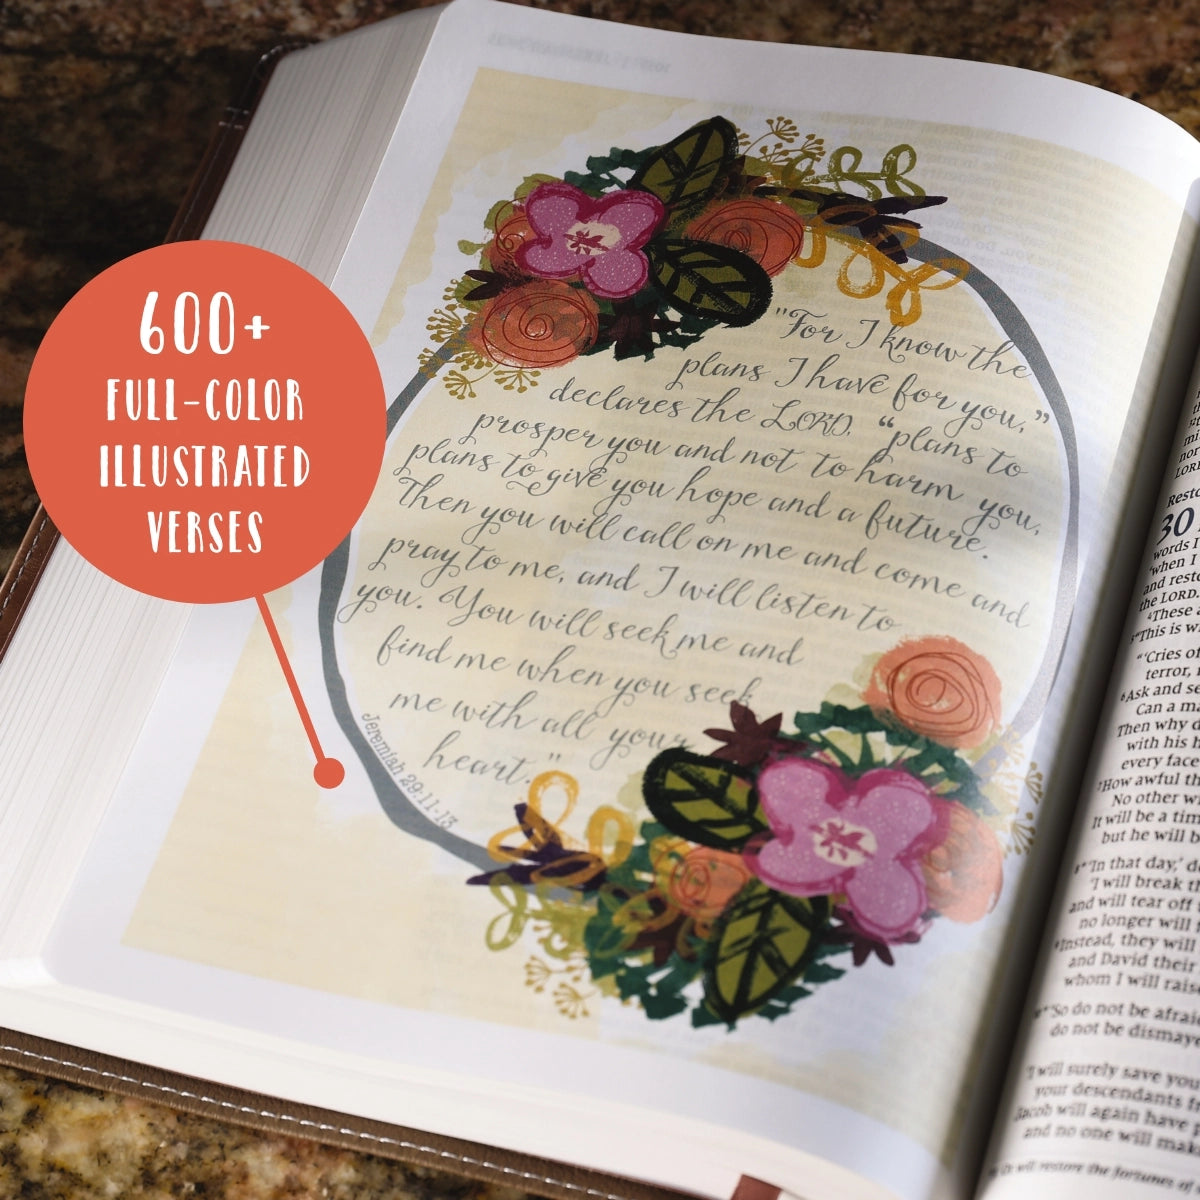 600+
FULL-COLOR
ILLUSTRATED
VERSES
"For I know the
plans I have for you,"
declares the LORD, "plans to
prosper you and not to harm you,
plans to give you hope and a future.
Then you will call on me and come and
pray to me, and I will listen to
you. You will seek me and
find me when you seek
me with all your
heart."
Jeremiah 29:11-13
30
words I
"when I
and resto
the LORD.
"These a
"This is w
"'Cries of
terror,
Ask and se
Can a ma
Then why d
with his h
every face
How awful th
No other w
It will be a tim
but he will b
"'In that day,' de
'I will break th
and will tear off
no longer will
Instead, they will
and David their
whom I will raise
"'So do not be afraid
do not be dismaye
'I will surely save you
your descendants fr
Jacob will again have p
and no one will mak